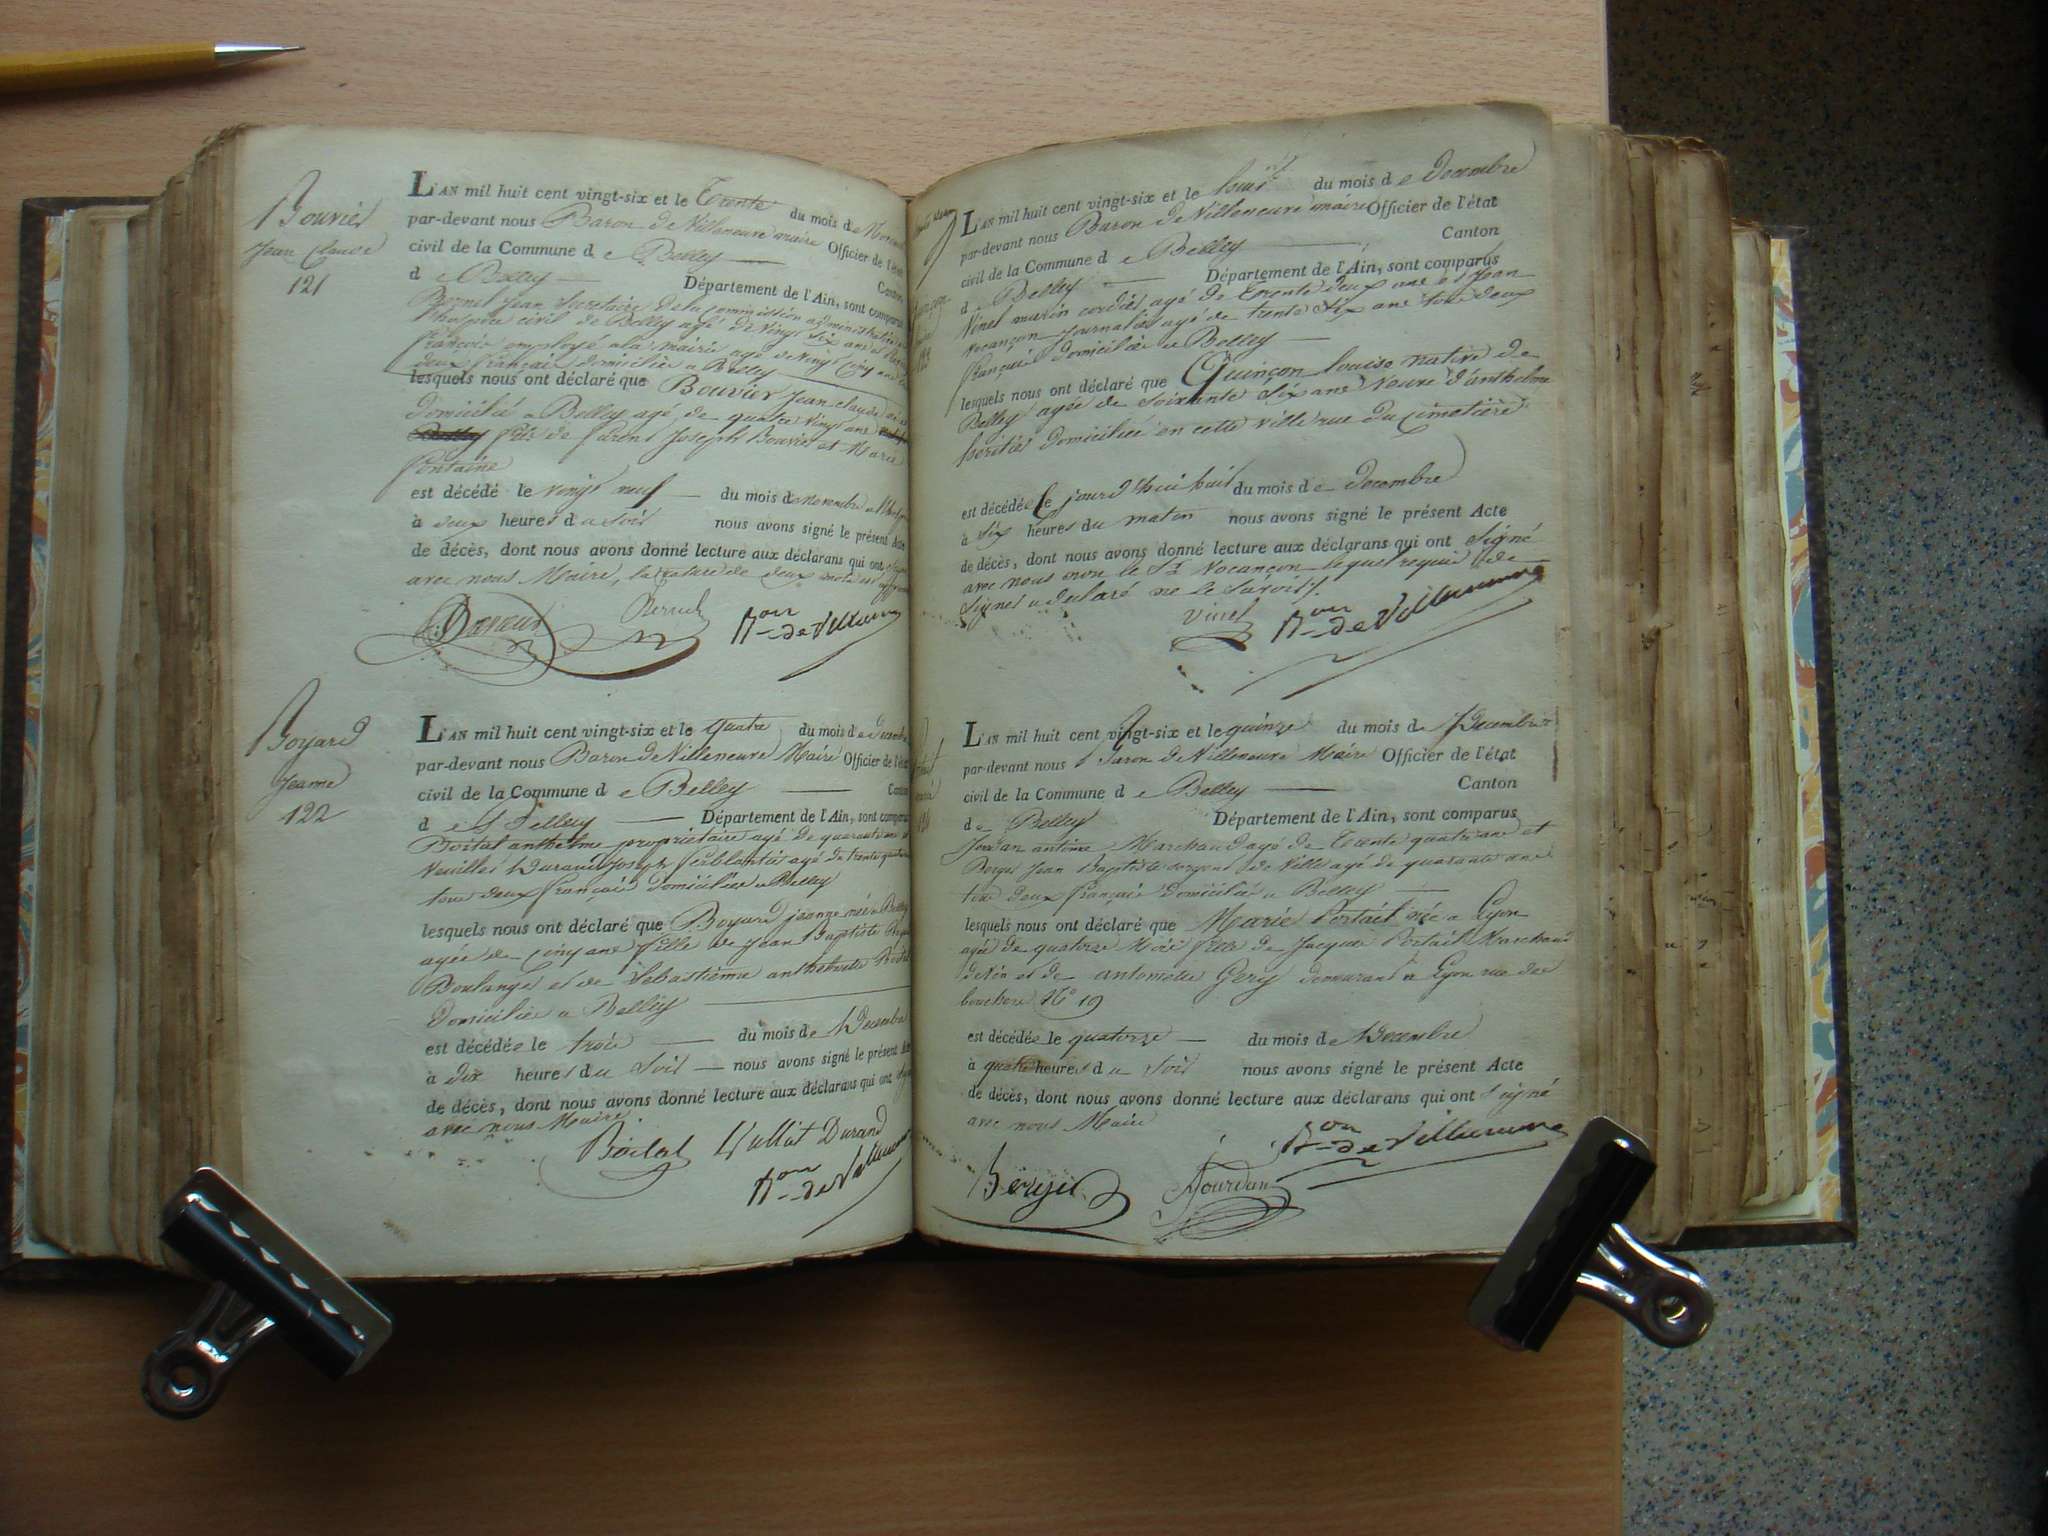 Bouvier
Jean Claude
121
L'AN mil huit cent vingt-six et le Trente du mois de
par-devant nous Baron de Villeneuve maire Officier de l'état
civil de la Commune d e Belley
Canton
d e Belley Département de l'Ain, sont comparus
Bernet Jean Secrétaire de la commission administrative
l'hospice civil de Belley agé de vingt six ans et
françois employé a la mairie agé de vingt cinq ans
deux français domiciliés a Belley
lesquels nous ont déclaré que Bouvier Jean claude
domicilié a Belley agé de quatre vingt ans
fils de Joseph Bouvier et Marie
fontaine
est décédé le vingt neuf du mois de novembre
à deux heures du Soir nous avons signé le présent Acte
de décès, dont nous avons donné lecture aux déclarans qui ont
avec nous Maire, la rature de deux mots est
Bernet
Bon de Villeneuve
Boyard
Jeanne
122
L'AN mil huit cent vingt-six et le quatre du mois de decembre
par-devant nous Baron de Villeneuve Maire Officier de l'état
civil de la Commune d e Belley Canton
d e Belley Département de l'Ain, sont comparus
anthelme proprietaire agé de quarante ans et
Durand Joseph ferblantier agé de trente quatre
tous deux français domiciliés a Belley
lesquels nous ont déclaré que Boyard jeanne née a Belley
agée de cinq ans fille de Jean Baptiste
Boulanger et de Sébastienne anthelmette
Domiciliée a Belley
est décédée le trois du mois de Decembre
à dix heures du Soir nous avons signé le présent Acte
de décès, dont nous avons donné lecture aux déclarans qui ont
avec nous Maire
Durand
Bon de Villeneuve
L'AN mil huit cent vingt-six et le huit du mois d e Decembre
par-devant nous Baron de Villeneuve maire Officier de l'état
civil de la Commune d e Belley Canton
d e Belley Département de l'Ain, sont comparus
Vinet marin cordier agé de Trente deux ans et Jean
Vocançon Journalier agé de trente Six ans tous deux
français domiciliés a Belley
lesquels nous ont déclaré que Quinçon louise native de
Belley agée de Soixante Six ans Veuve d'anthelme
domiciliée en cette ville rue du cimetière
est décédée le jourd'hui huit du mois d e decembre
à Six heures du matin nous avons signé le présent Acte
de décès, dont nous avons donné lecture aux déclarans qui ont Signé
avec nous non le Sr Vocançon lequel requis de
Signer a declaré ne le Savoir.
Vinet
Bon de Villeneuve
L'AN mil huit cent vingt-six et le quinze du mois de Decembre
par-devant nous Baron de Villeneuve Maire Officier de l'état
civil de la Commune d e Belley Canton
de Belley Département de l'Ain, sont comparus
Jourdan antoine Marchand agé de Trente quatre ans et
Berger Jean Baptiste sergent de Ville agé de quarante ans
tous deux français Domiciliés a Belley
lesquels nous ont déclaré que Marie Portail née a Lyon
agée de quatorze Mois fille de Jacques Portail Marchand
de Vin et de antoinette Gery demeurant a Lyon rue des
bouchers No 19
est décédée le quatorze du mois de Decembre
à quatre heures du Soir nous avons signé le présent Acte
de décès, dont nous avons donné lecture aux déclarans qui ont Signé
avec nous Maire
Bon de Villeneuve
Berger
Jourdan